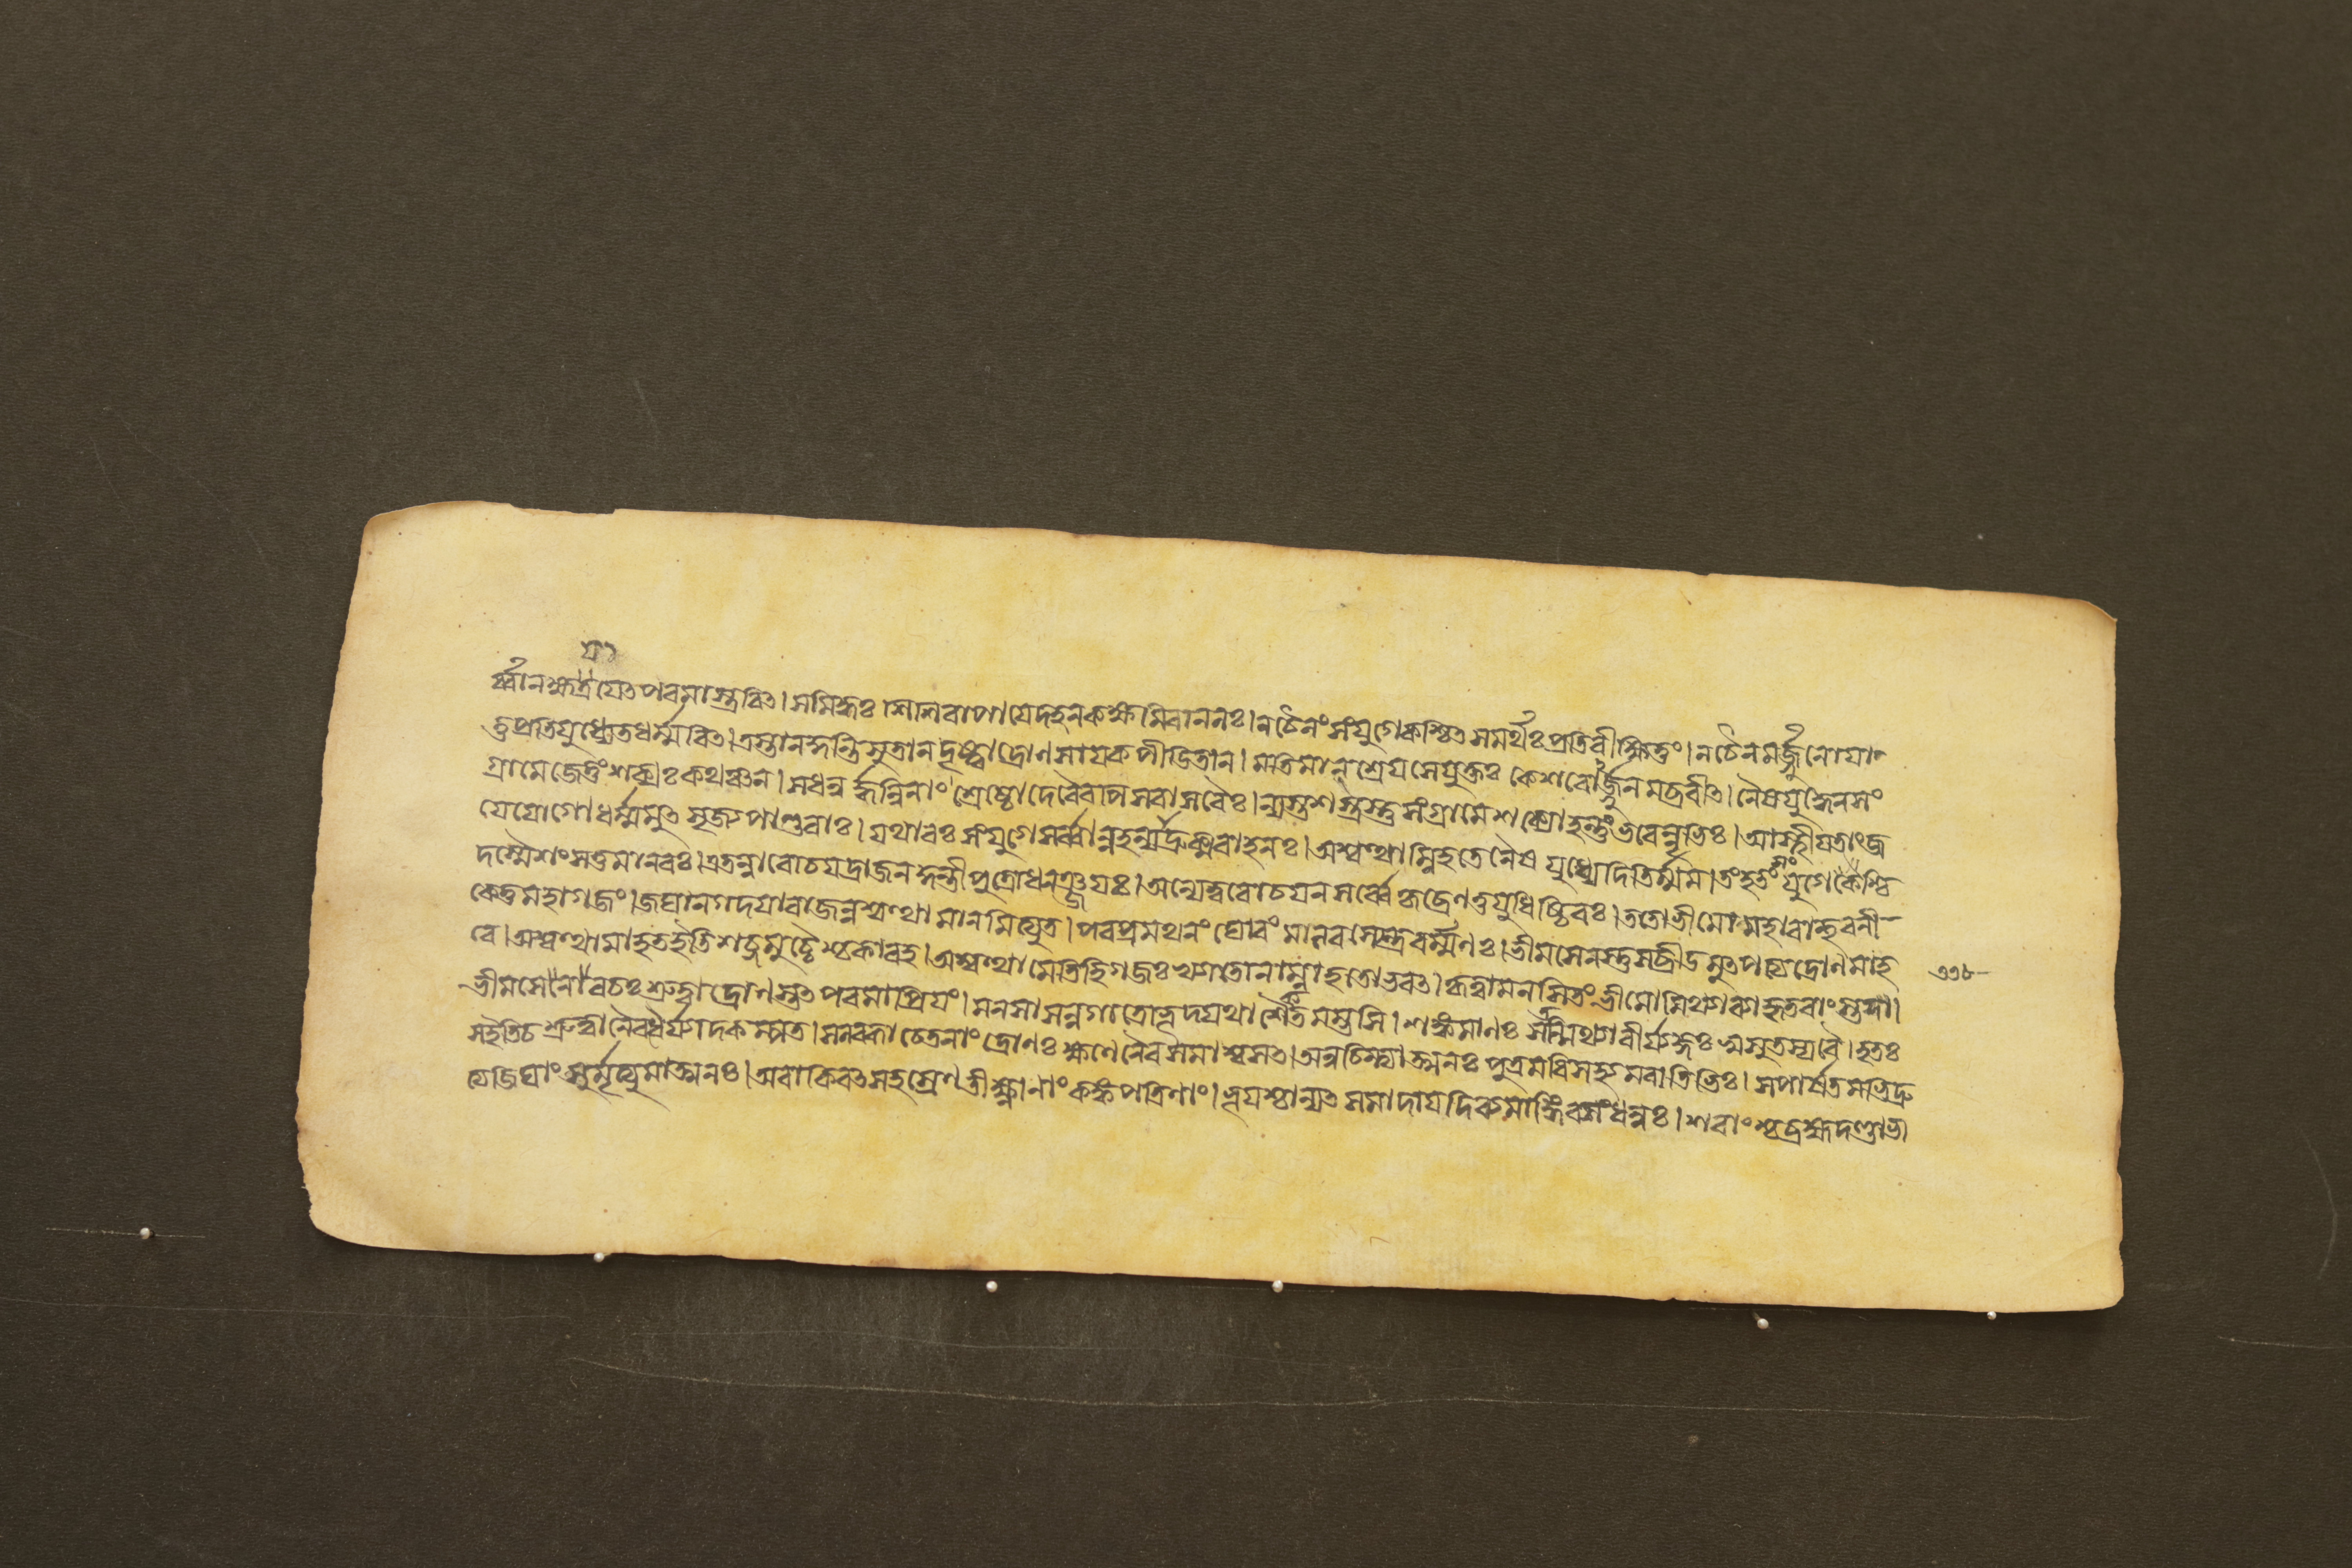 র্ব্বান ক্ষত্রযেৎ পৰমাস্ত্রবিৎ। সমিদ্ধঃ শিশিৰাপাযে দহন কক্ষমিবাননঃ। নচৈনং সংযুগে কশ্চিৎ সমর্থঃ প্রতিবীক্ষিতুং। নচৈনমর্জ্জুনো যা
তু প্রতিযুধ্যেত ধর্ম্মবিৎ। ত্রস্তান কুন্তিসুতান দৃষ্ট্বা দ্রোণসাযকপীডিতান। মতিমান্ শ্রেযসে যুক্তঃ কেশবোর্জ্জুনমব্রবীৎ। নৈষ যুদ্ধেন সং
গ্রামে জেতুং শক্যঃ কথঞ্চন। সধনুর্দ্ধন্বিনাং শ্রেষ্ঠো দেবৈৰপি সবাসবৈঃ। ন্যস্তশস্ত্রস্তু সংগ্রামে শক্যো হন্তুং ভবেন্নৃভিঃ। আস্থীযতাং জ
যে যোগো ধর্ম্মমুৎসৃজ্য পাণ্ডবাঃ। যথাবঃ সংযুগে সর্ব্বান্ন হন্যাদ্রুক্মবাহনঃ। অশ্বত্থাম্নি হতে নৈষ যুধ্যেদিতি মতির্ম্মম। তং হতং সংযুগে কশ্চি
দস্মৈ শংসতু মানবঃ। এতন্নাৰোচযদ্রাজন কুন্তীপুত্রো ধনঞ্জযঃ। অন্যেত্বৰোচযন সর্ব্বে কৃচ্ছ্রেণতু যুধিষ্ঠিৰঃ। ততো ভীমো মহাবাহুৰনী
কেতু মহাগজং। জঘান গদযা ৰাজন্নশ্বত্থামানমিত্যুত। পৰপ্রমথনং ঘোৰং মালবস্যেন্দ্রবর্ম্মণঃ। ভীমসেনস্তু সব্রীডমুপেত্য দ্রোণমাহ
বে। অশ্বত্থামা হত ইতি শব্দমুচ্চৈশ্চকাৰহ। অশ্বত্থামেতি হি গজঃ খ্যাতো নাম্না হতোভবৎ। কৃত্বা মনসি তং ভীমো মিথ্যা ব্যাহৃতবাংস্তদা।
ভীমসেনবচঃ শ্রুত্বা দ্রোণস্তৎ পৰমাপ্রিযং। মনসা সন্নগাত্রোভূদ্যথা সৈকতমম্ভসি। শঙ্কমানঃ স তন্মিথ্যা বীর্য্যজ্ঞঃ স্বসুতস্য বৈ। হতঃ
স ইতিচ শ্রুত্বা নৈব ধৈর্য্যাদকম্পত। স লব্ধা চেতনাং দ্রোণঃ ক্ষণেনৈব সমাশ্বসৎ। অনুচিন্ত্যাত্মনঃ পুত্রমবিসহ্যমৰাতিভিঃ। স পার্ষতমভিদ্রু
ত্য জিঘাংসুর্ম্মৃত্যুমাত্মনঃ। অবাকিৰৎ সহস্রেণ তীক্ষ্ণানাং কঙ্কপত্রিণাং। ভূযশ্চান্যৎ সমাদায দিব্যমাঙ্গিৰসং ধনুঃ। শৰাংশ্চ ব্রহ্মদণ্ডাভা
১১৮